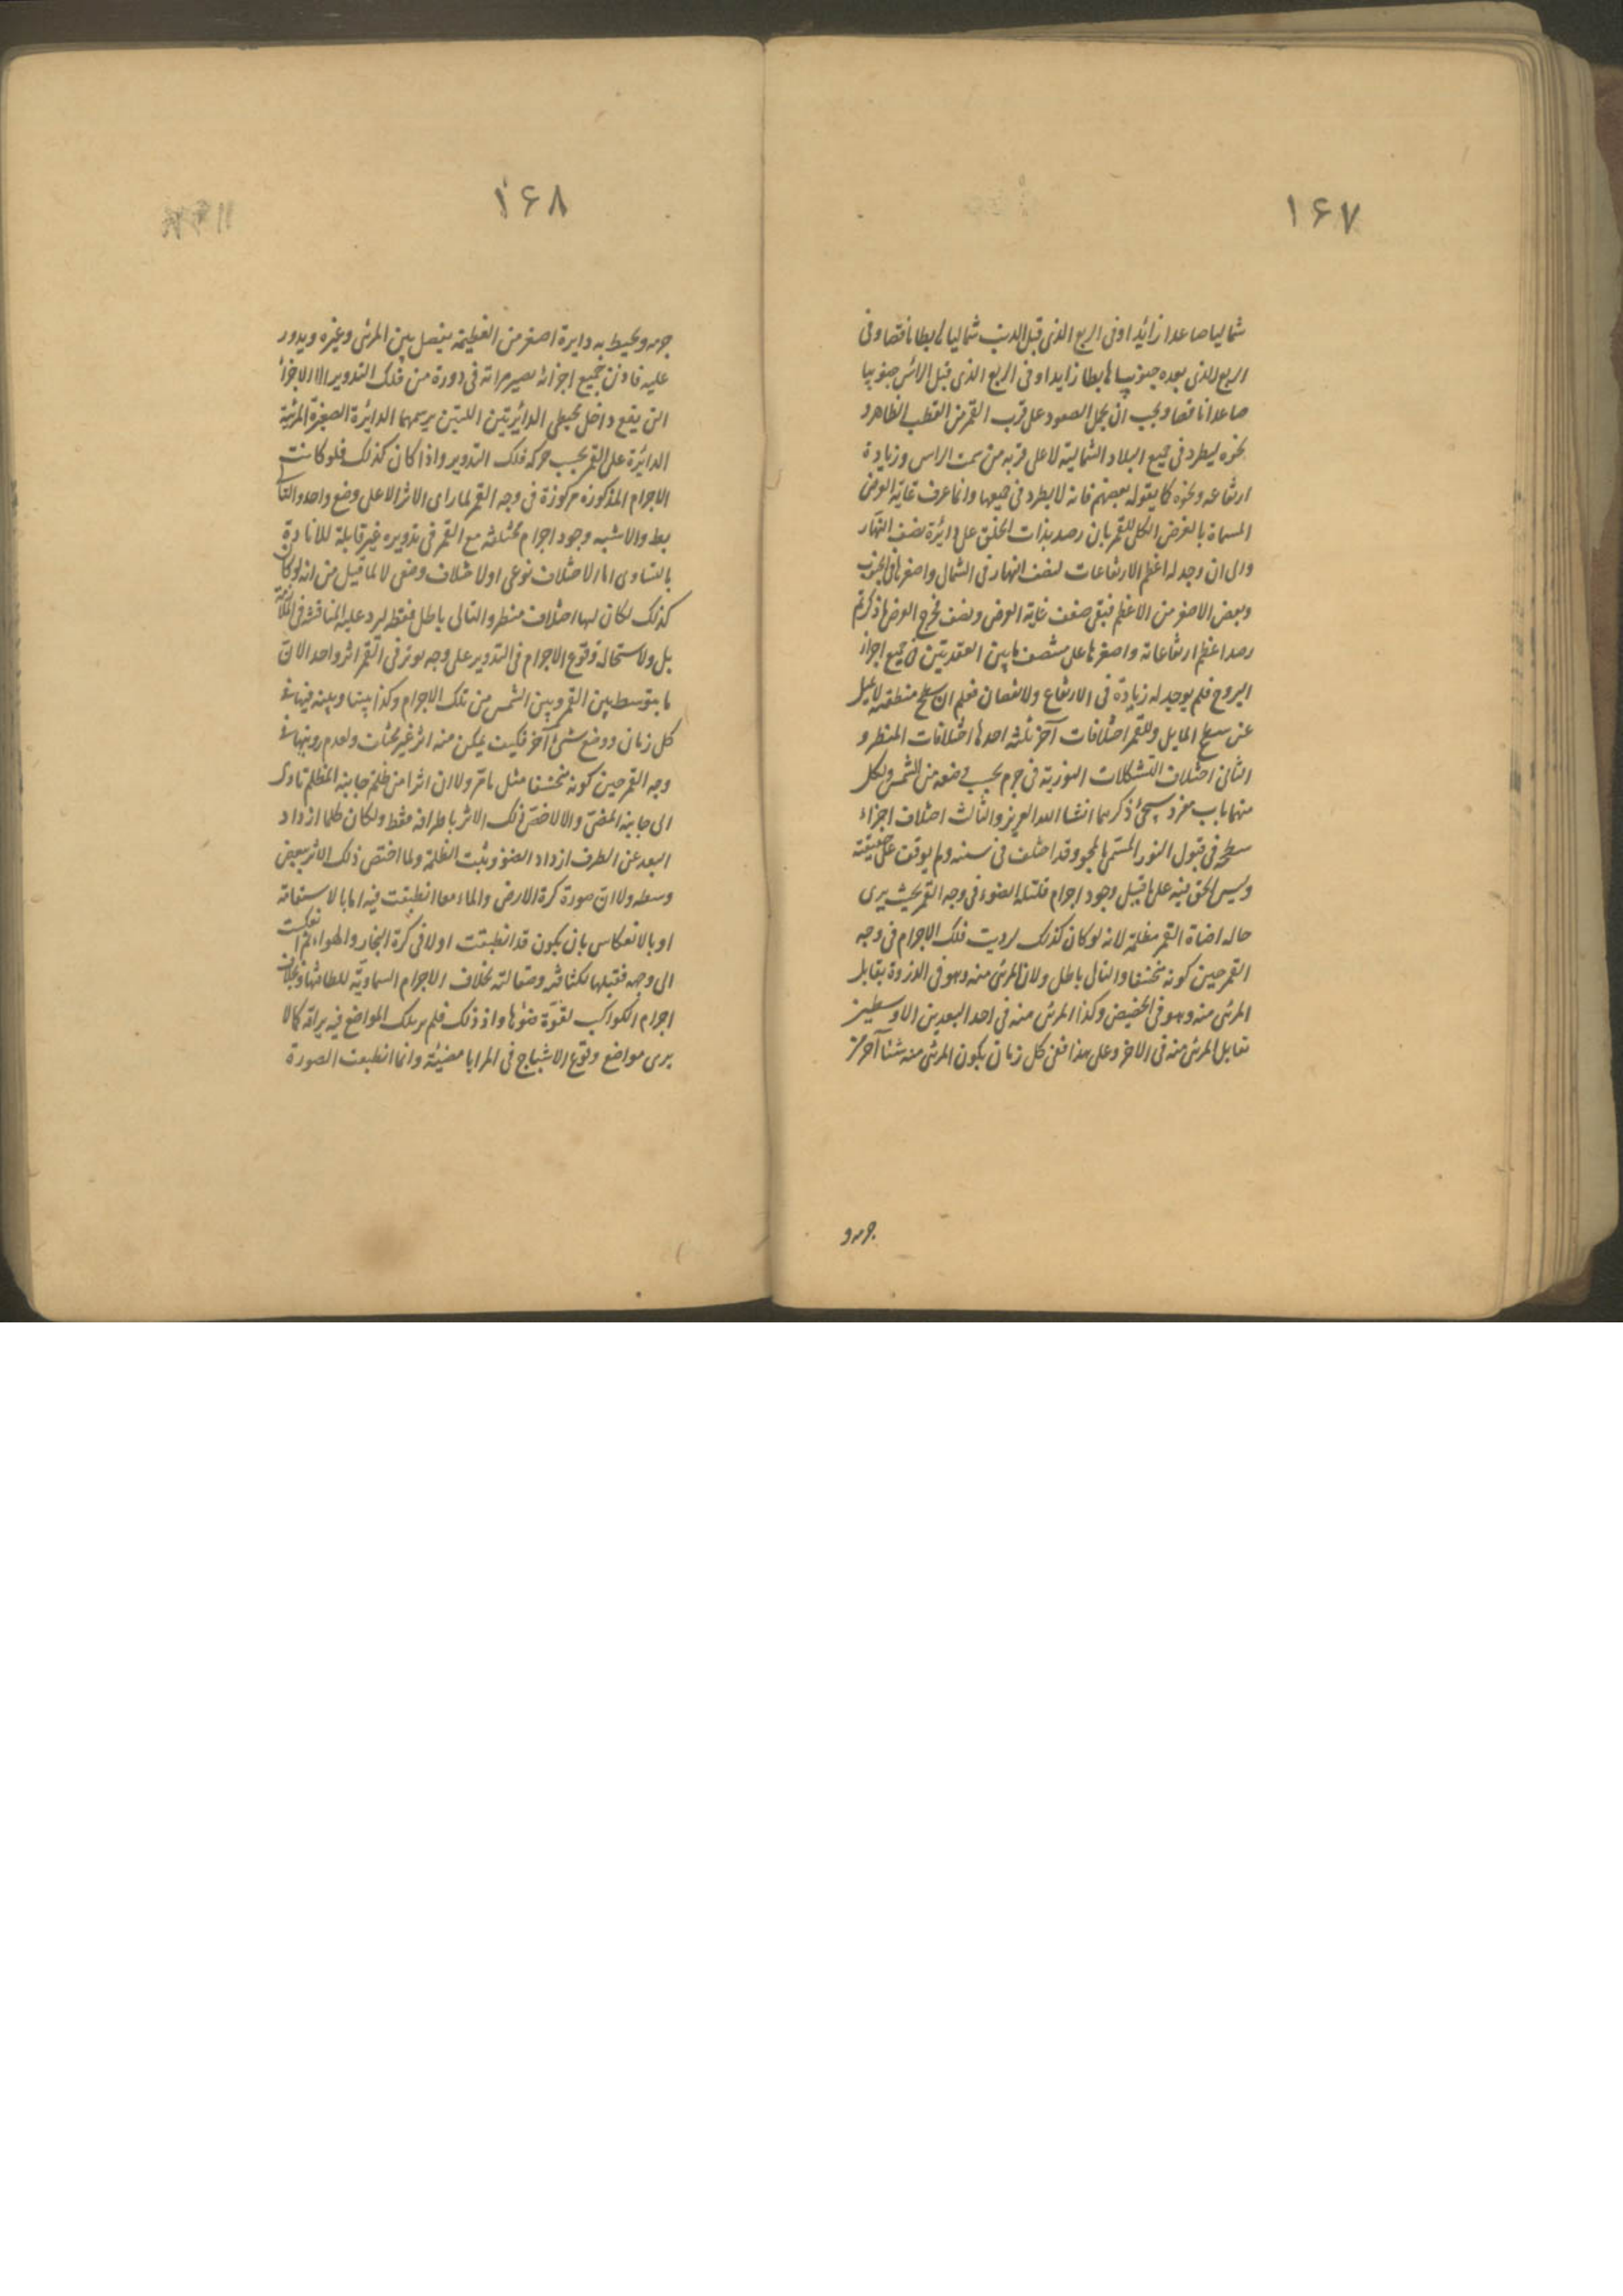 ١۶٧
شماليا صاعدا زائدا وفى الربع الذى قبل الذنب شماليا هابطا ناقصا وفى
الربع الذى بعده جنوبيا هابطا زايدا وفى الربع الذى قبل الراس جنوبيا
صاعدا ناقصا ويجب ان يحمل الصعود على قرب القمر من القطب الظاهر و
نحوه ليطرد فى جميع البلاد الشمالية لا على قربه من سمت الراس وزيادة
ارتفاعه ونحوه كما يقوله بعضهم فانه لا يطرد فى جميعها وانما عرف غاية العرض
المسماة بالعرض الكلى للقمر بان رصد بذات الحلق على دائرة نصف النهار
والى ان وجد له اعظم الارتفاعات لنصف النهار فى الشمال واصغرها فى الجنوب
ونقص الاصغر من الاعظم فبقى ضعف غاية العرض ونصف فخرج العرض ما ذكر ثم
رصد اعظم ارتفاعاته واصغرها على منتصف ما بين العقدتين فى جميع اجزاء
البروج فلم يوجد له زيادة فى الارتفاع ولا نقصان فعلم ان سطح منطقته لا يميل
عن سطح المايل وللقمر اختلافات آخر ثلثة احدها اختلافات المنظر و
الثانى اختلاف التشكلات النورية فى جرمه بحسب وضعه من الشمس ولكل
منهما باب مفرد سيجئ ذكرهما انشا الله العزيز والثالث اختلاف اجزاء
سطحه فى قبول النور المسمى بالمحو وقد اختلف فى سببه ولم يوقف على حقيقته
وليس الحق فيه على ما قيل وجود اجرام قليلة الضوء فى وجه القمر بحيث يرى
حاله اضاة القمر مظلمة لانه لو كان كذلك لرويت تلك الاجرام فى وجه
القمر حين كونه منخسفا والتالى باطل ولان المرئى منه وهو فى الذروة يقابل
المرئى منه وهو فى الحضيض وكذا المرئى منه فى احد البعدين الاوسطين
تقابل المرئى منه فى الاخر وعلى هذا ففى كل زمان يكون المرئى منه شئا آخر من
جرمه و
١۶٨
جرمه ويحيط به دايرة اصغر من العظيمة يفصل بين المرئى وغيره ويدور
عليه فاذن جميع اجزائه يصير مراته فى دورة من فلك التدوير الا الاجزا
التى يقع داخل محيطى الدائرتين اللتين يرسمهما الدائرة الصغيرة المرئية
الدائرة على القمر بحسب حركه فلك التدوير واذا كان كذلك فلو كانت
الاجرام المذكوره مركوزة فى وجه القمر لما راى الاثر الا على وضع واحد والتالى
بط والاشبه وجود اجرام مختلفه مع القمر فى تدويره غير قابلة للانارة
بالتساوى اما لاختلاف نوعى اولاختلاف وضعى لا لما قيل من انه لو كان
كذلك لكان لها اختلاف منظر والتالى باطل فقط ليرد عليه المناقشه فى الملازمة
بل ولاستحالة وقوع الاجرام فى التدوير على وجه يوثر فى القمر اثر واحد الان
ما يتوسط بين القمر وبين الشمس من تلك الاجرام وكذا بيننا وبينه فيها فى
كل زمان ووضع شئ آخر فكيف يمكن منه اثر غير مختلف ولعدم رويتها فى
وجه القمر حين كونه منخسفا مثل ما مر ولا ان اثرا من ظلمة جانبه المظلم تادى
الى جانبه المضئ والا لاختص ذلك الاثر باطرافه فقط ولكان كلما ازداد
البعد عن الطرف ازداد الضوء وثبت الظلمة ولما اختص ذلك الاثر ببعض
وسطه ولا ان صورة كرة الارض والماء معا انطبعت فيه اما بالاستقامة
او بالانعكاس بان يكون قد انطبعت اولا فى كرة البخار والهواء ثم انعكست
الى وجهه فقبلها لكثافته وصقالته بخلاف الاجرام السماوية للطافتها وبخلاف
اجرام الكواكب لقوة ضوئها واذ ذلك فلم ير تلك المواضع فيه براقه كما لا
يرى مواضع وقوع الاشباح فى المرايا مضيئة وانما انطبعت الصورة